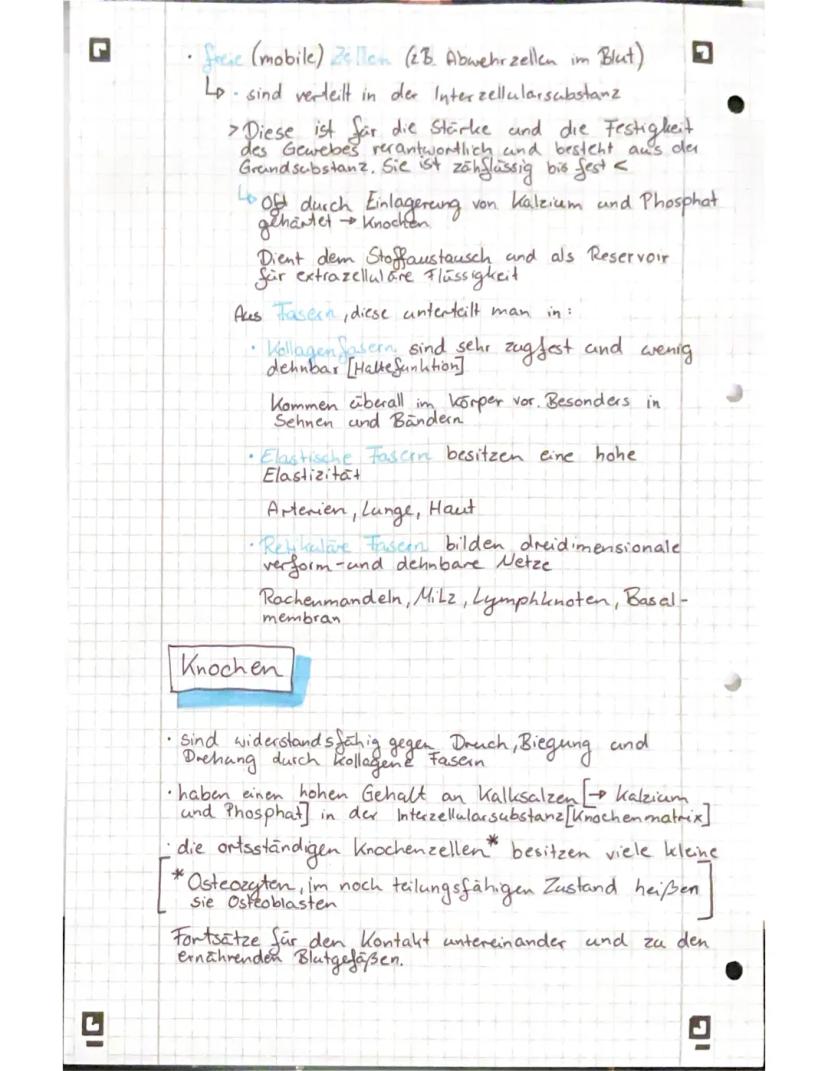 · freie (mobile) Zellen (z.B. Abwehrzellen im Blut)
↳ · sind verteilt in der Interzellularsubstanz
> Diese ist für die Stärke und die Festigkeit
des Gewebes verantwortlich und besteht aus der
Grundsubstanz. Sie ist zähflüssig bis fest <
↳ Oft durch Einlagerung von Kalzium und Phosphat
gehärtet → Knochen
Dient dem Stoffaustausch und als Reservoir
für extrazelluläre Flüssigkeit
Aus Fasern, diese unterteilt man in:
· Kollagenfasern sind sehr zugfest und wenig
dehnbar [Haltefunktion]
Kommen überall im Körper vor. Besonders in
Sehnen und Bändern
· Elastische Fasern besitzen eine hohe
Elastizität
Arterien, Lunge, Haut
· Retikuläre Fasern bilden dreidimensionale
verform- und dehnbare Netze
Rachenmandeln, Milz, Lymphknoten, Basal-
membran
Knochen
· sind widerstandsfähig gegen Druch, Biegung und
Drehung durch kollagene Fasern
· haben einen hohen Gehalt an Kalksalzen [→ Kalzium
und Phosphat] in der Interzellularsubstanz [Knochenmatrix]
· die ortsständigen Knochenzellen* besitzen viele kleine
[* Osteozyten, im noch teilungsfähigen Zustand heißen
sie Osteoblasten]
Fortsätze für den Kontakt untereinander und zu den
ernährenden Blutgefäßen.